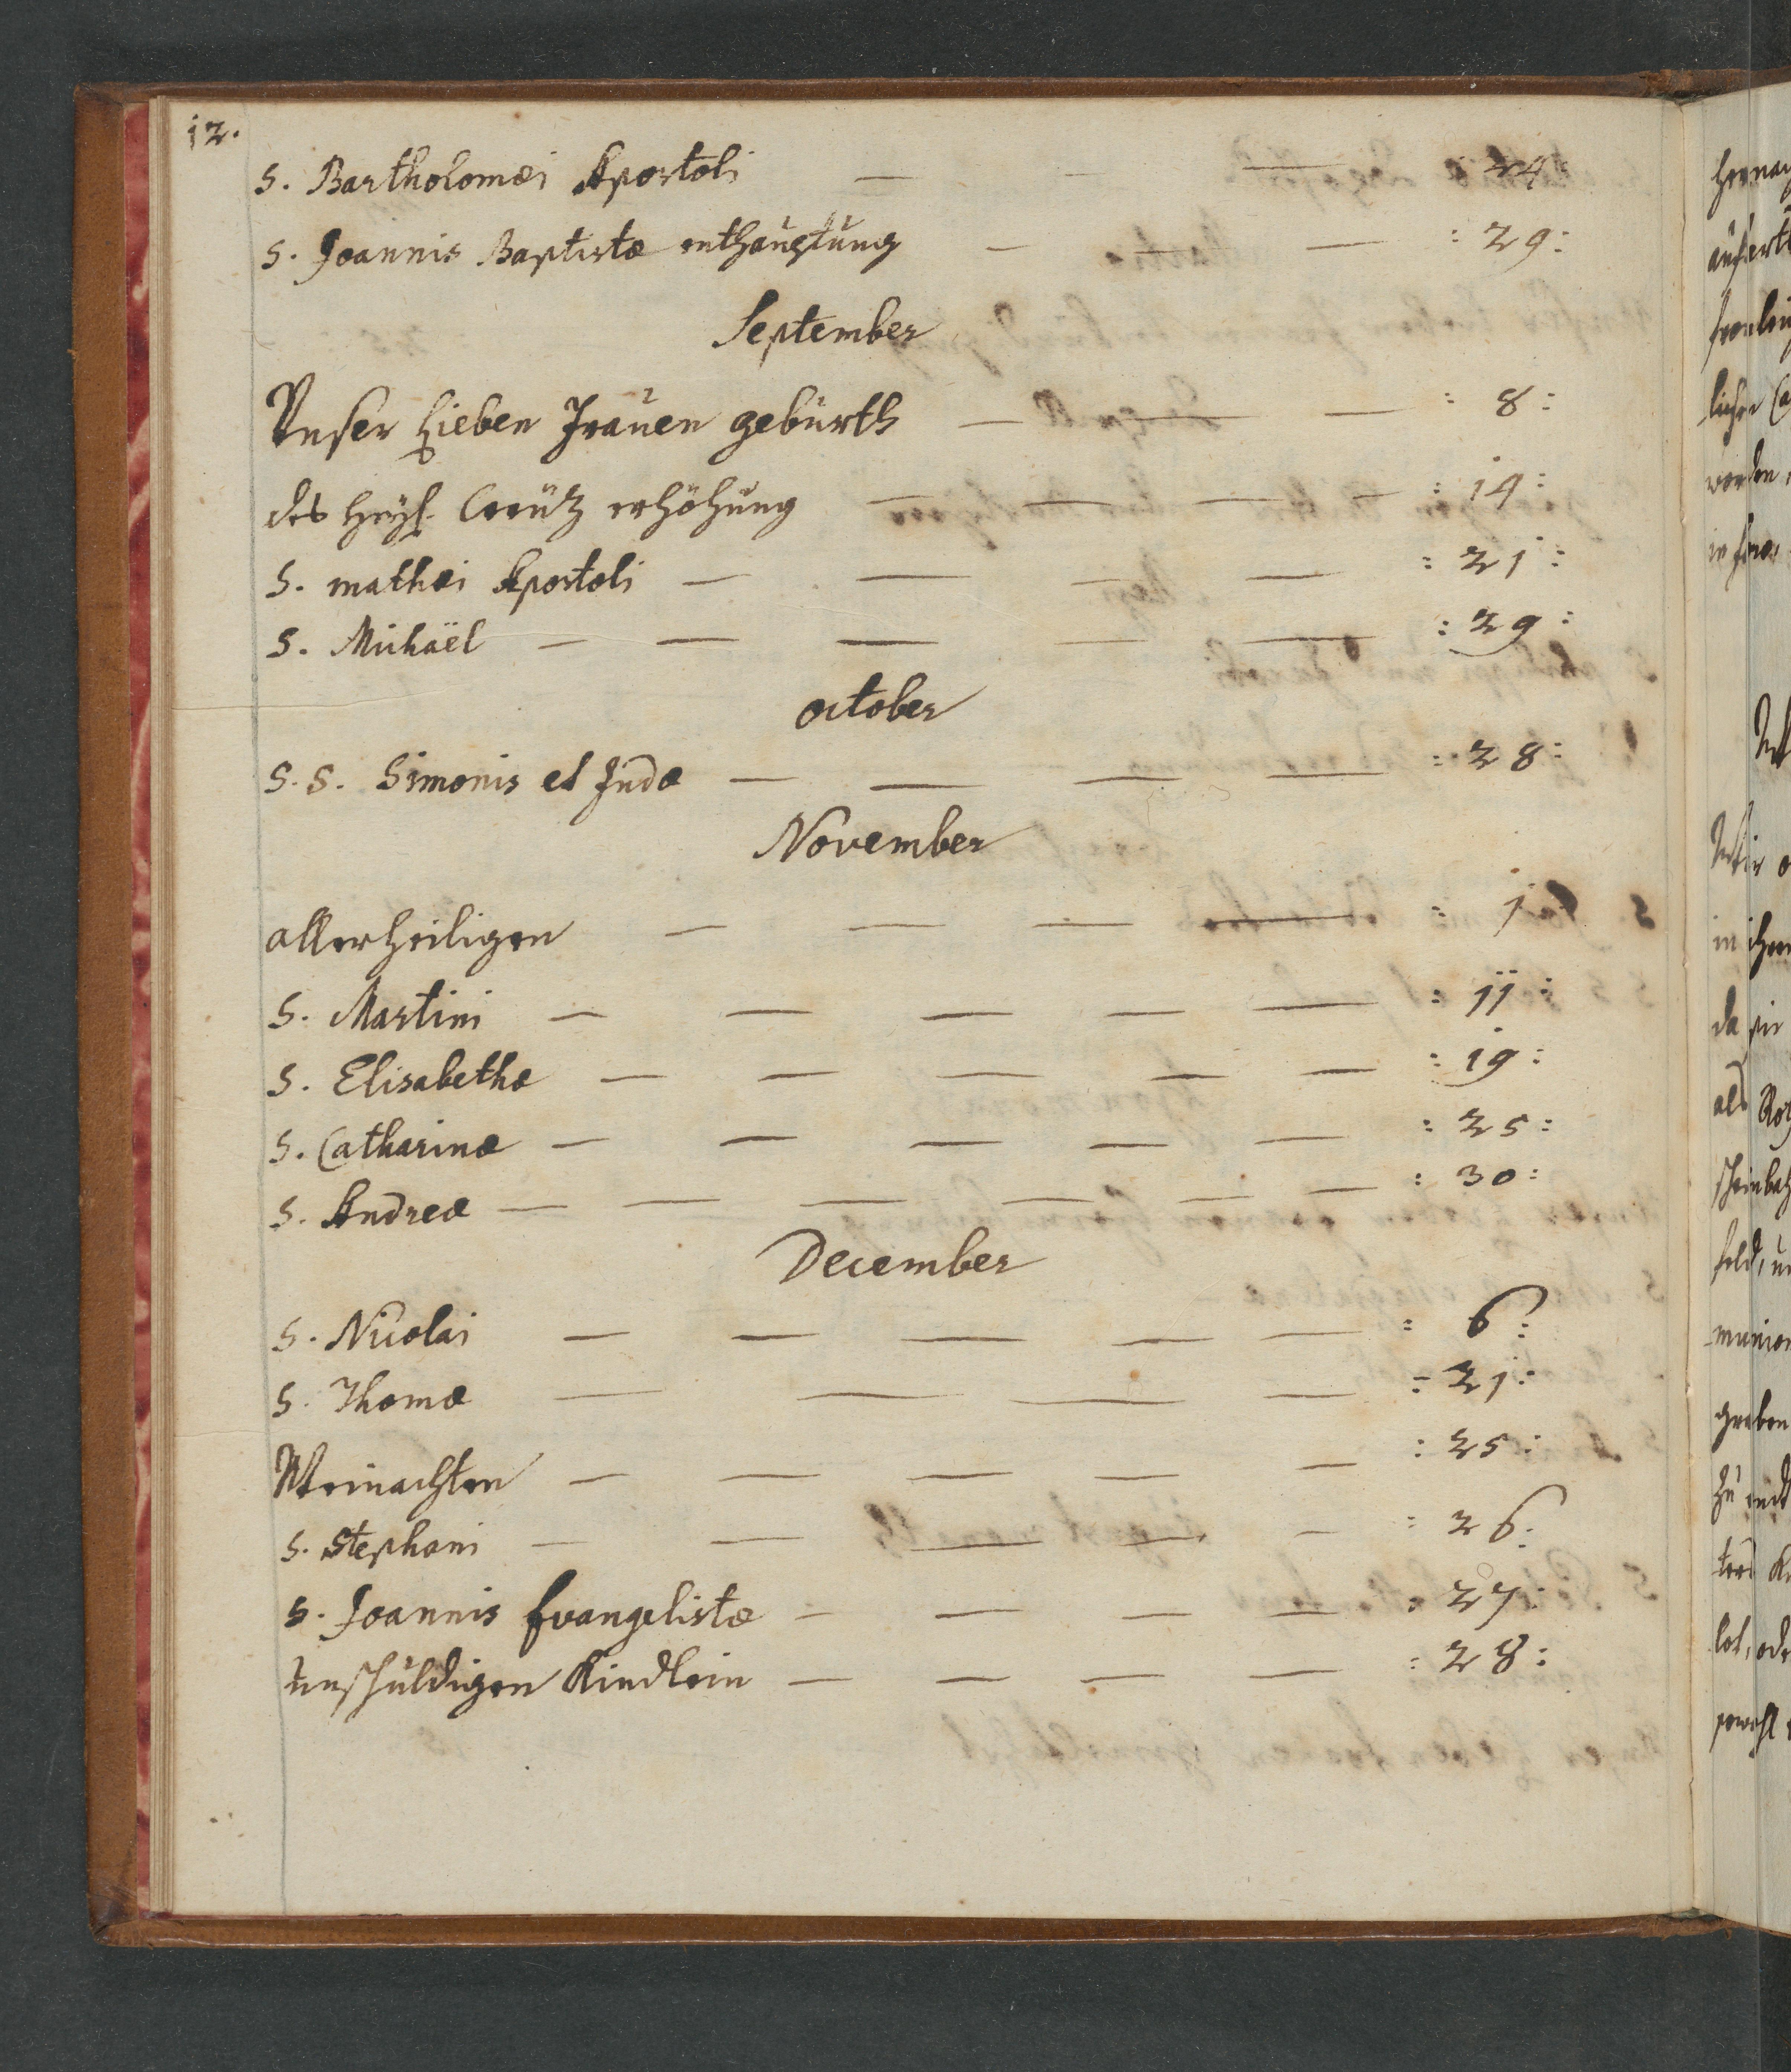 12.
S. Bartholomæi Apostoli — — — : 24 :
S. Joannis Baptistæ enthauptung — — — : 29 :
September
Unser Lieben Frauen geburth — — — : 8 :
des Heyl. Creutz erhöhung — — — — : 14 :
S. mathæi Apostoli — — — — : 21 :
S. Michaël — — — — — : 29 :
october
S. S. Simonis et Judæ — — — — : 28 :
November
allerheiligen — — — — : 1
S. Martini — — — — — : 11 :
S. Elisabethæ — — — — — : 19 :
S. Catharinæ — — — — — : 25 :
S. Andreæ — — — — — — : 30 :
December
S. Nicolai — — — — — : 6 :
S. Thomæ — — — — : 21 :
Weinachten — — — — — : 25 :
S. Stephani — — — — — : 26 :
S. Joannis Evangelistæ — — — — : 27 :
unschuldigen Kindlein — — — — : 28 :